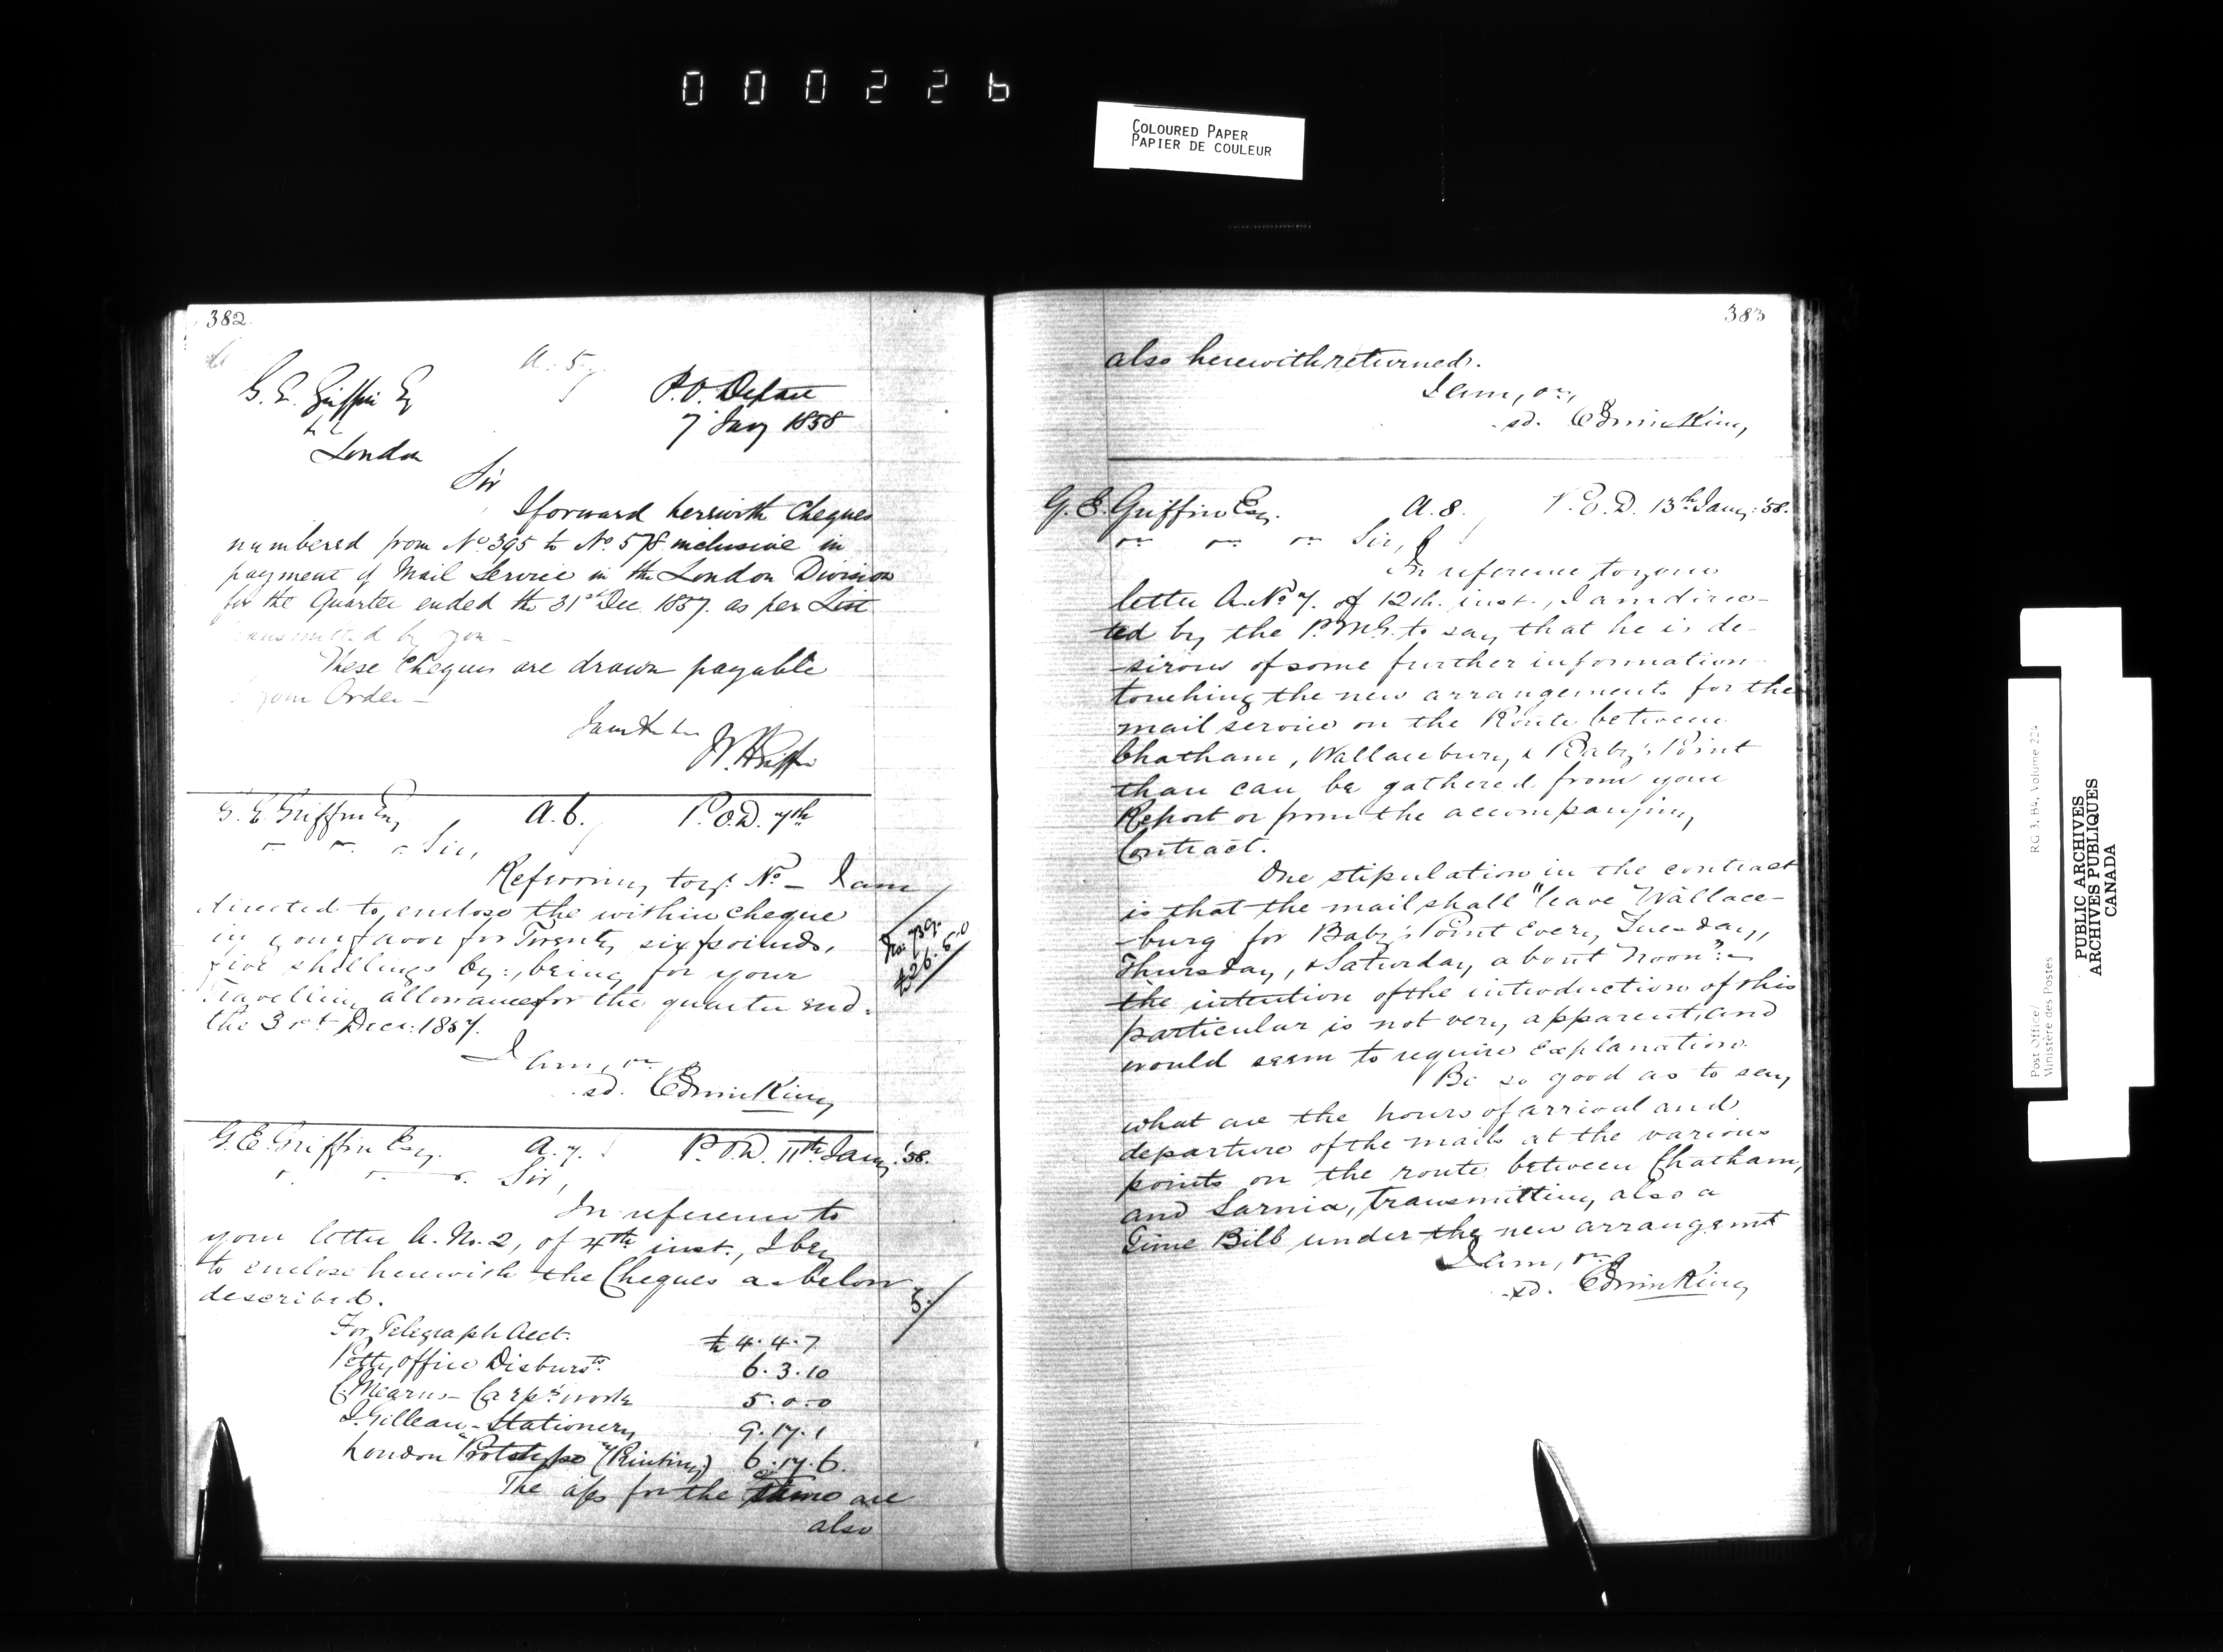 000226
COLOURED PAPER
PAPIER DE COULEUR
382
A. 5
G. E. Griffin Esq
P.O. Depart
7 Jany 1858
London
Sir
I forward herewith Cheques
numbered from No. 395 to No. 578 inclusive in
payment of Mail Service in the London Division
for the Quarter ended the 31st Dec 1857. as per List
transmitted by you -
These Cheques are drawn payable
your Order -
I am
W. H. Griffin
G. E. Griffin Esq
A. 6.
P.O.D. 7th
Sir,
Referring to yr. No. - I am
directed to enclose the within cheque
in your favor for Twenty six pounds,
five shillings Cy:, being for your
Travelling allowance for the quarter end.
the 31st Decr. 1857.
No. 739.
£26.5.0
I am,
sd. Edwin King
G. E. Griffin Esq.
A. 7.
P.O.D. 11th Jany. '58.
Sir,
In reference to
your letter A. No. 2, of 4th inst., I beg
to enclose herewith the Cheques as below
described.
5.
For Telegraph Acct. £ 4. 4. 7
Petty office Disbursts. 6. 3. 10
C. Mearns - Carprs work 5. 0. 0
Gillean - Stationery 9. 17. 1
London "Prototype" (Printing) 6. 17. 6.
The a/cs for the same are
also
383
also herewith returned.
I am,
sd. Edwin King
G. E. Griffin Esq.
A. 8.
P.O.D. 13th Jany: '58.
Sir,
In reference to your
letter A. No. 7. of 12th. inst., I am direc-
ted by the P.M.G. to say that he is de-
-sirous of some further information
touching the new arrangements for the
mail service on the Route between
Chatham, Wallaceburg, & Baby's Point
than can be gathered from your
Report or from the accompanying
Contract.
One stipulation in the contract
is that the mail shall "leave Wallace-
-burg for Baby's Point every Tuesday,
Thursday, & Saturday about Noon": -
the intention of the introduction of this
particular is not very apparent, and
would seem to require explanation.
Be so good as to say
what are the hours of arrival and
departure of the mails at the various
points on the route between Chatham,
and Sarnia, transmitting also a
Time Bill under the new arrangemt
I am,
sd. Edwin King
Post Office/
Ministère des Postes
RG 3, B4, Volume 224
PUBLIC ARCHIVES
ARCHIVES PUBLIQUES
CANADA